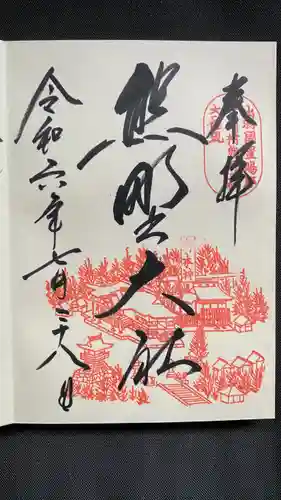 奉拝
熊野大社
令和六年七月二十八日